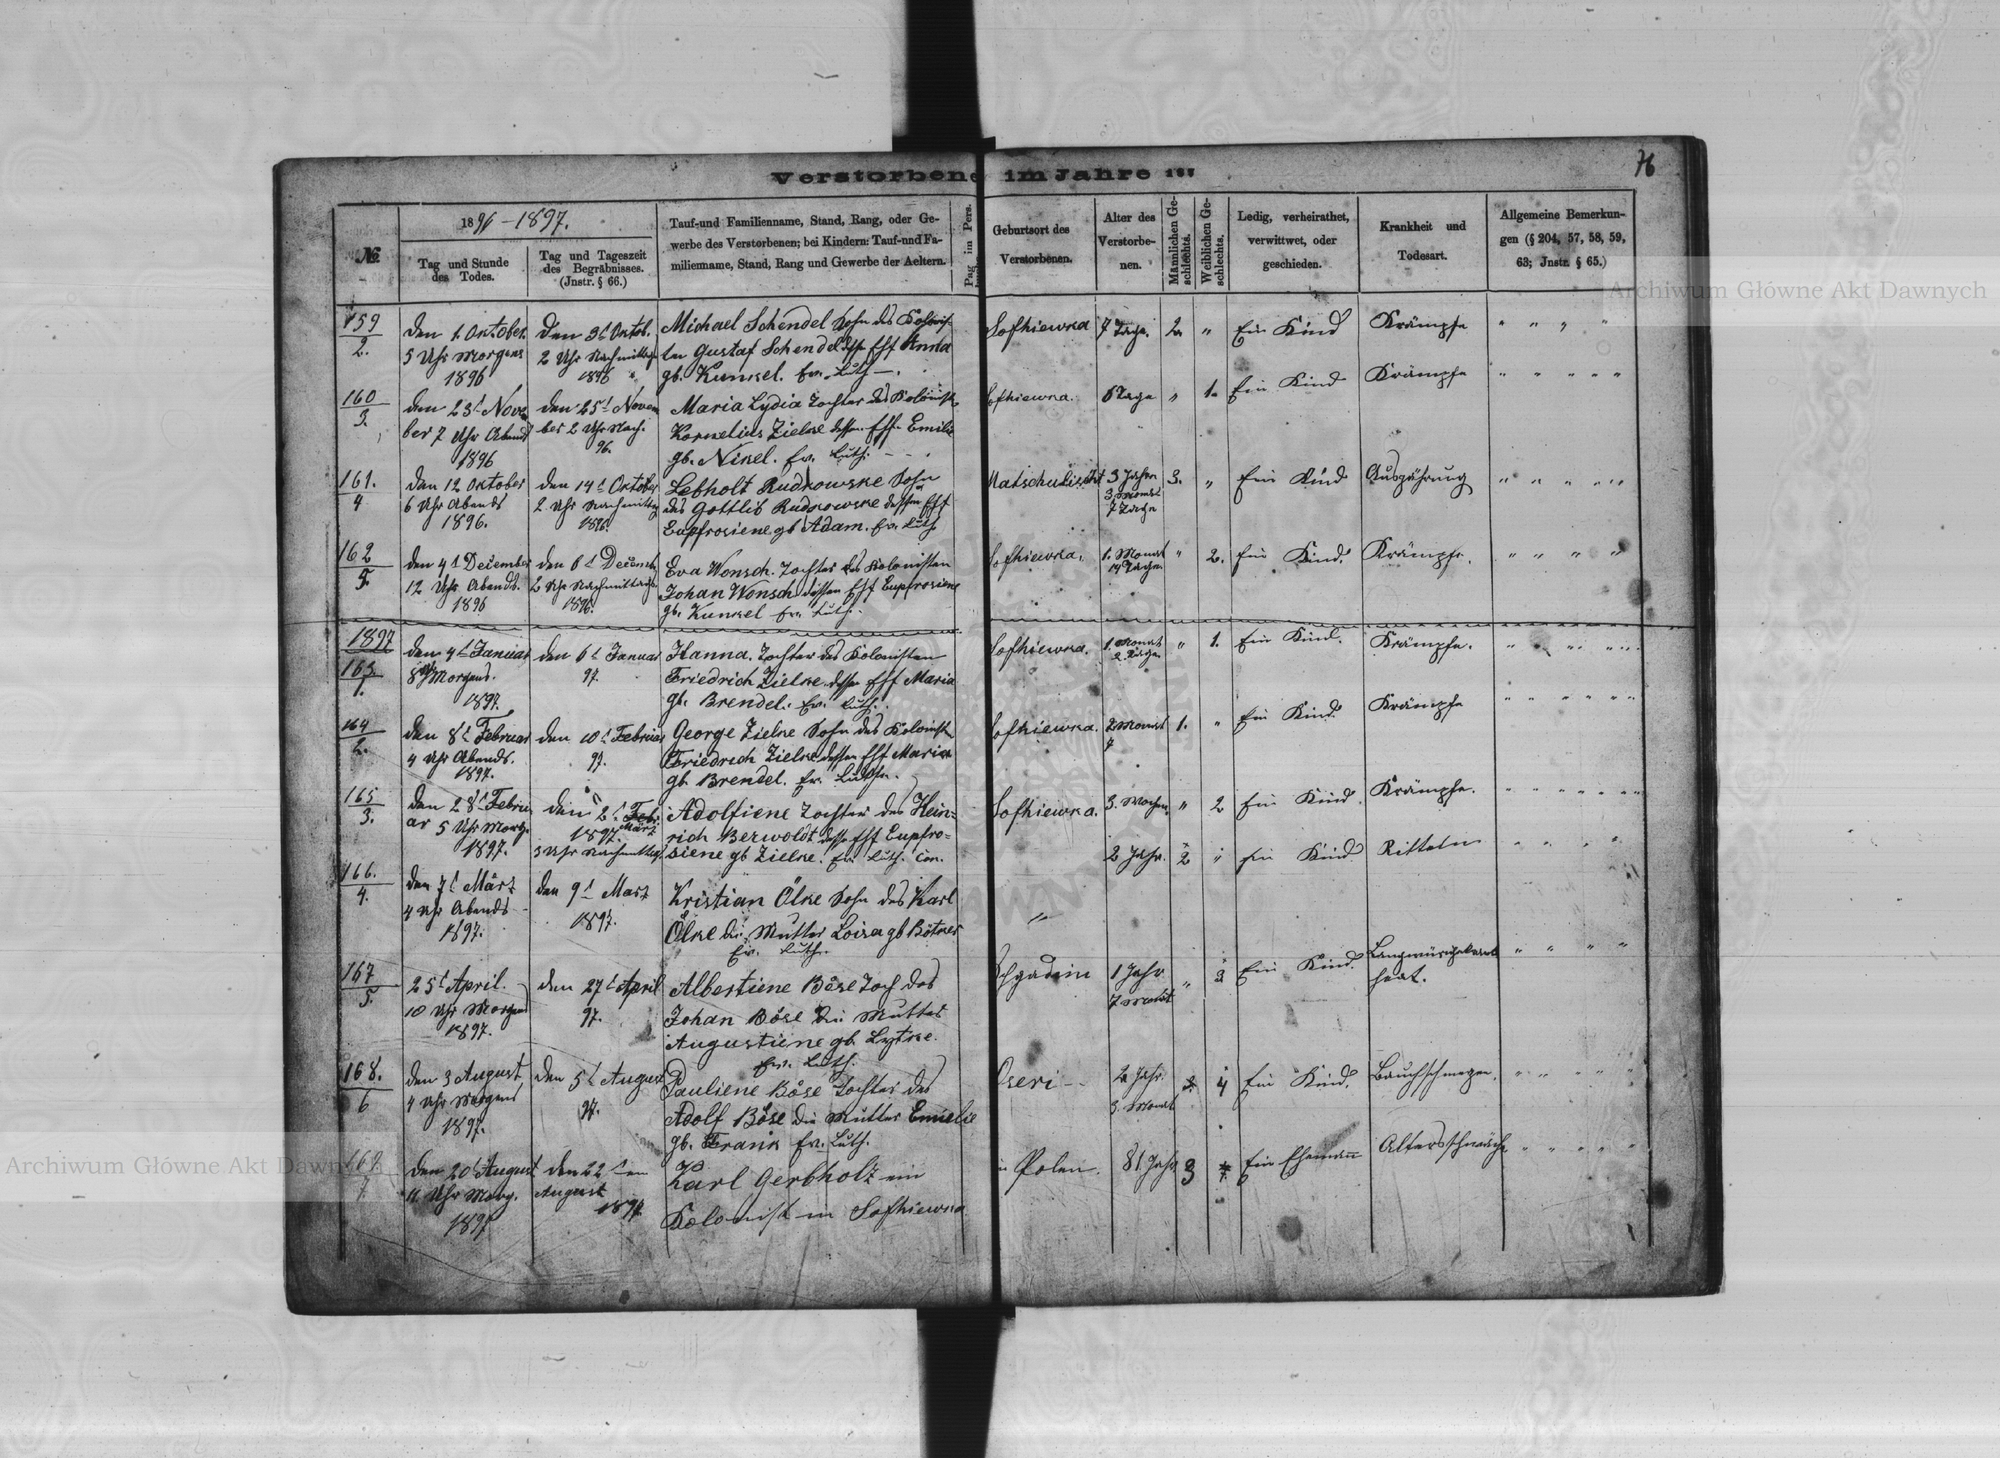 76
Verstorbene im Jahre 187
№
1896 - 1897.
Tag und Stunde
des Todes.
Tag und Tageszeit
des Begräbnisses.
(Jnstr. § 66.)
Tauf-und Familienname, Stand, Rang, oder Ge-
werbe des Verstorbenen; bei Kindern: Tauf-und Fa-
milienname, Stand, Rang und Gewerbe der Aeltern.
Pag im Pers.
Geburtsort des
Verstorbenen.
Alter des
Verstorbe-
nen.
Männlichen Ge-
schlechts.
Weiblichen Ge-
schlechts.
Ledig, verheirathet,
verwittwet, oder
geschieden.
Krankheit und
Todesart.
Allgemeine Bemerkun-
gen (§ 204, 57, 58, 59,
63; Jnstr. § 65.)
159
2.
den 1. Oktober
5 Uhr Morgens
1896
den 3t Oktob.
2 Uhr Nachmittag
1896
Michael Schendel Sohn des Kolonis-
ten Gustaf Schendel desse Ehf Anna
gb. Kunkel. Ev. Luth
Sofhiewka
7 Tage.
2.
"
Ein Kind
Krämpfe
" " " "
160
3.
den 23t Novem
ber 7 Uhr Abend
1896
den 25t Novem
ber 2 Uhr Nach.
96.
Maria Lydia Tochter des Kolonist
Kornelius Zielke dessen Ehf Emilie
gb. Nikel. Ev. Luth.
Sofhiewka.
6 Tage
"
1.
Ein Kind
Krämpfe
" " " " "
161.
4
den 12 Oktober
6 Uhr Abends
1896.
den 14t Oktober
2 Uhr Nachmittag
1896.
Lebholt Rudkowske Sohn
des Gottlib Rudkowske dessen Ehf
Eupfrosiene gb Adam. Ev. Luth
3 Jahre
3 Monat
7 Tage
3.
"
Ein Kind
Auszährung
" " " " "
162
5.
den 4t December
12 Uhr Abends.
1896
den 6t Decemb
2 Uhr Nachmittags
1896.
Eva Wonsch. Tochter des Kolonisten
Johan Wonsch dessen Ehf Eupfrosiene
gb. Kunkel Ev. Luth.
Sofhiewka.
1. Monat
14 Tage
"
2.
Ein Kind.
Krämpfe.
" " " "
1897
163
1.
den 4t Januar
8 Uhr Morgens.
1897.
den 6t Januar
97.
Hanna. Tochter des Kolonisten
Friedrich Zielke dessen Ehf Maria
gb. Brendel. Ev. Luth.
Sofhiewka.
1. Monat
2. Tage
"
1.
Ein Kind.
Krämpfe.
" " " "
164
2.
den 8t Februar
4 Uhr Abends.
1897.
den 10t Februar
97.
George Zielke Sohn des Kolonist
Friedrich Zielke dessen Ehf Maria
gb. Brendel. Ev. Luth.
Sofhiewka.
2 Monat
7
1.
"
Ein Kind
Krämpfe
" " " " " "
165
3.
den 28t Febru
ar 5 Uhr Morg.
1897.
den 2t Feb.
1897. März
3 Uhr Nachmittag
Adolfiene Tochter des Hein-
rich Berwoldt desse Ehf Eupfro-
siene gb Zielke. Ev. Luth. Con.
Sofhiewka.
3. Wochen
"
2
Ein Kind.
Krämpfe.
" " " " "
166.
4.
den 7t März
4 Uhr Abends
1897.
den 9t März
1897.
Kristian Ölke Sohn des Karl
Ölke die Mutter Loisa gb Bötker
Ev. Luth.
"
2 Jahr.
2
"
Ein Kind
" " " "
167
5.
25t April.
10 Uhr Morgens
1897.
den 27t April
97.
Albertiene Böse Toch des
Johan Böse die Mutter
Augustiene gb. Lytke.
Ev. Luth.
1 Jahr
7 Monat
"
3
Ein Kind.
" " " "
168.
6
den 3 August
4 Uhr Morgens
1897.
den 5t August
97.
Pauliene Böse Tochter des
Adolf Böse die Mutter Emielie
gb. Frank Ev. Luth.
Oseri
2 Jahr.
3. Monat
4
Ein Kind.
" " " " "
169
7.
den 20t August
11 Uhr Morg.
1897
den 22ten
August
1897
Karl Gerbholz ein
Kolonist in Sofhiewka
in Polen.
81 Jahr
3
Ein Ehemann
Altersschwäche
" " " " "
Archiwum Główne Akt Dawnych
Archiwum Główne Akt Dawnych